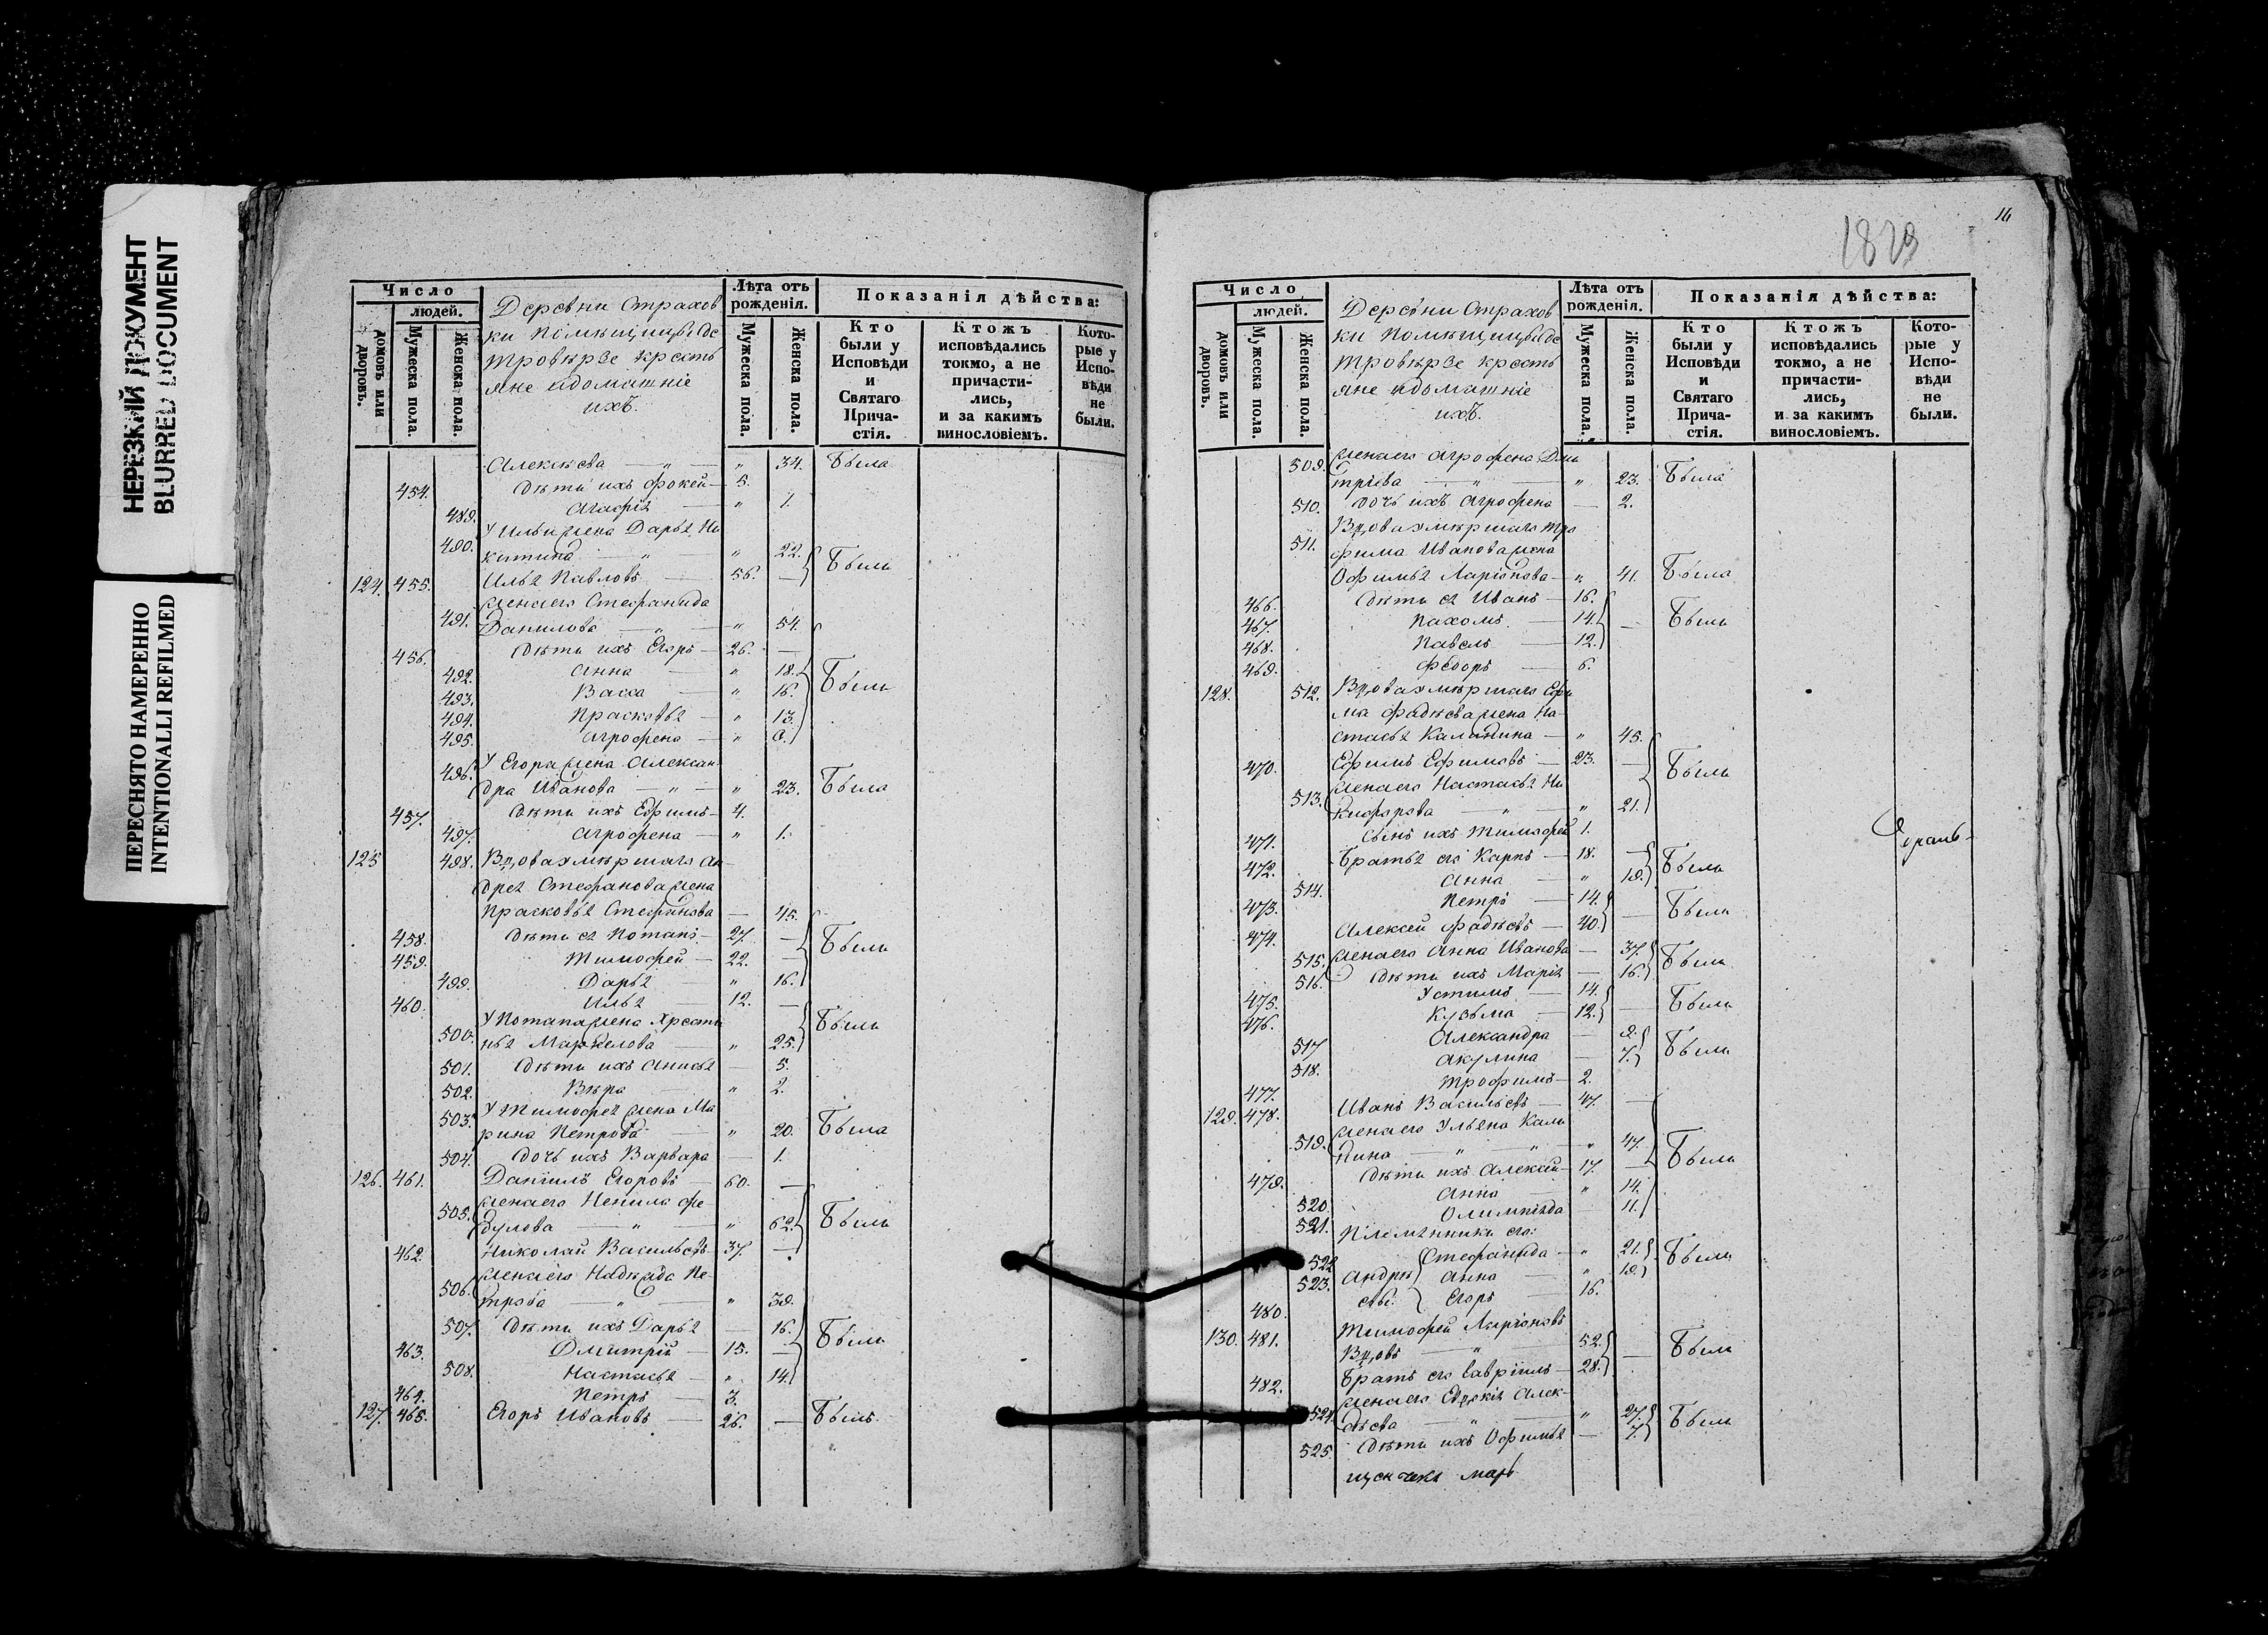 НЕРЕЗКИЙ ДОКУМЕНТ
BLURRED DOCUMENT
ПЕРЕСНЯТО НАМЕРЕННО
INTENTIONALLI REFILMED
Число
людей.
домовъ или дворовъ.
Мужеска пола.
Женска пола.
Деревни Страхов
ки помѣщицы Де
тровѣрзе кресть
яне и домашніе
ихъ.
Лѣта отъ рожденія.
Мужеска пола.
Женска пола.
Показанія дѣйства:
Кто были у Исповѣди и Святаго Прича-стія.
Ктожъ исповѣдались токмо, а не причасти-лись, и за какимъ винословіемъ.
Кото-рые у Испо-вѣди не были.
Алекѣева — " — " 34. Была
454. Дѣти ихъ Фокей — 5.
489. Агафія — " 1.
У Ильи жена Дарья Ни
490. китина — " — " 22. Были
124. 455. Илья Павловъ — 56. —
жена его Стефанида
491. Данилова — " — " 54.
456. Дѣти ихъ Егоръ — 26. —
492. Анна — " 18. Были
493. Васса — " 16.
494. Прасковья — " 13.
495. Агрофена — " 6.
У Егора жена Алексан
496. дра Иванова — " — " 23. Была
457. Дѣти ихъ Ефимъ — 4.
497. Агрофена — " 1.
125 498. Вдова умѣршаго Ан-
дрея Стефанова жена
Прасковья Стефанова — 45.
458. Дѣти ея Потапъ — 27. — Были
459. Тимофей — 22. —
499. Дарья — " 16.
460. Илья — 12. —
У Потапа жена Христи Были
500. нья Маркелова — " 25.
501. Дѣти ихъ Анисья — 5.
502. Вѣра — " 2.
У Тимофея жена Ма
503. рина Петрова — " 20. Была
504. Дочь ихъ Варвара — 1.
126. 461. Даніилъ Егоровъ — 60. —
жена его Ненила Фе
505. дулова — " — " 62. Были
462. Николай Васильевъ — 37. —
жена его Надежда Пе-
506. трова — " — " 39.
507. Дѣти ихъ Дарья — 16. Были
463. Дмитрій — 15. —
508. Настасья — " 14.
464. Петръ — 3.
127. 465. Егоръ Ивановъ — 26. — Былъ
16
1829
Число
людей.
домовъ или дворовъ.
Мужеска пола.
Женска пола.
Деревни Страхов
ки помѣщицы Де
тровѣрзе кресть
яне и домашніе
ихъ.
Лѣта отъ рожденія.
Мужеска пола.
Женска пола.
Показанія дѣйства:
Кто были у Исповѣди и Святаго Прича-стія.
Ктожъ исповѣдались токмо, а не причасти-лись, и за какимъ винословіемъ.
Кото-рые у Испо-вѣди не были.
509. жена его Агрофена Дми
тріева — " — " 23. Была
510. Дочь ихъ Агрофена — 2.
Вдова умѣршаго Тро
511. фима Иванова жена
Офимья Ларіонова — " 41. Была
466. Дѣти ея Иванъ — 16.
467. Пахомъ — 14. — Были
468. Павелъ — 12.
469. Федоръ — 6.
128. 512. Вдова умѣршаго Ефи
ма Фадѣева жена На-
стасья Калинина — " 45.
470. Ефимъ Ефимовъ — 23. — Были
жена его Настасья Ни
513. кифорова — " — " 21.
471. Сынъ ихъ Тимофей 1.
472. Братья его Карпъ — 18. — Были
514. Анна — " 19.
473. Петръ — 14. — Были
474. Алексей Фадѣевъ — 40.
515. жена его Анна Иванова — 37. Были
516. Дѣти ихъ Марія — 16.
475. Устимъ — 14. — Были
476. Кузьма — 12.
517 Александра — 9. Были
518. Акулина — 7.
477. Трофимъ — 2.
129. 478. Иванъ Васильевъ — 47. —
жена его Ульяна Кали
519. нина — " " — " 47. Были
479. Дѣти ихъ Алексей — 17. —
520. Анна — " 14.
521. Олимпіяда — 11.
Племянники его:
522 Стефанида — " 21. Были
523. Андрѣ Анна — " 19.
480. евы. Егоръ — 16.
130. 481. Тимофей Ларіоновъ
Вдовъ — " 52. — Были
482. Братъ его Гавріилъ — 28.
жена его Евдокія Алек-
524. сѣева — " — " 27. Были
525. Дѣти ихъ Офимья — 7.